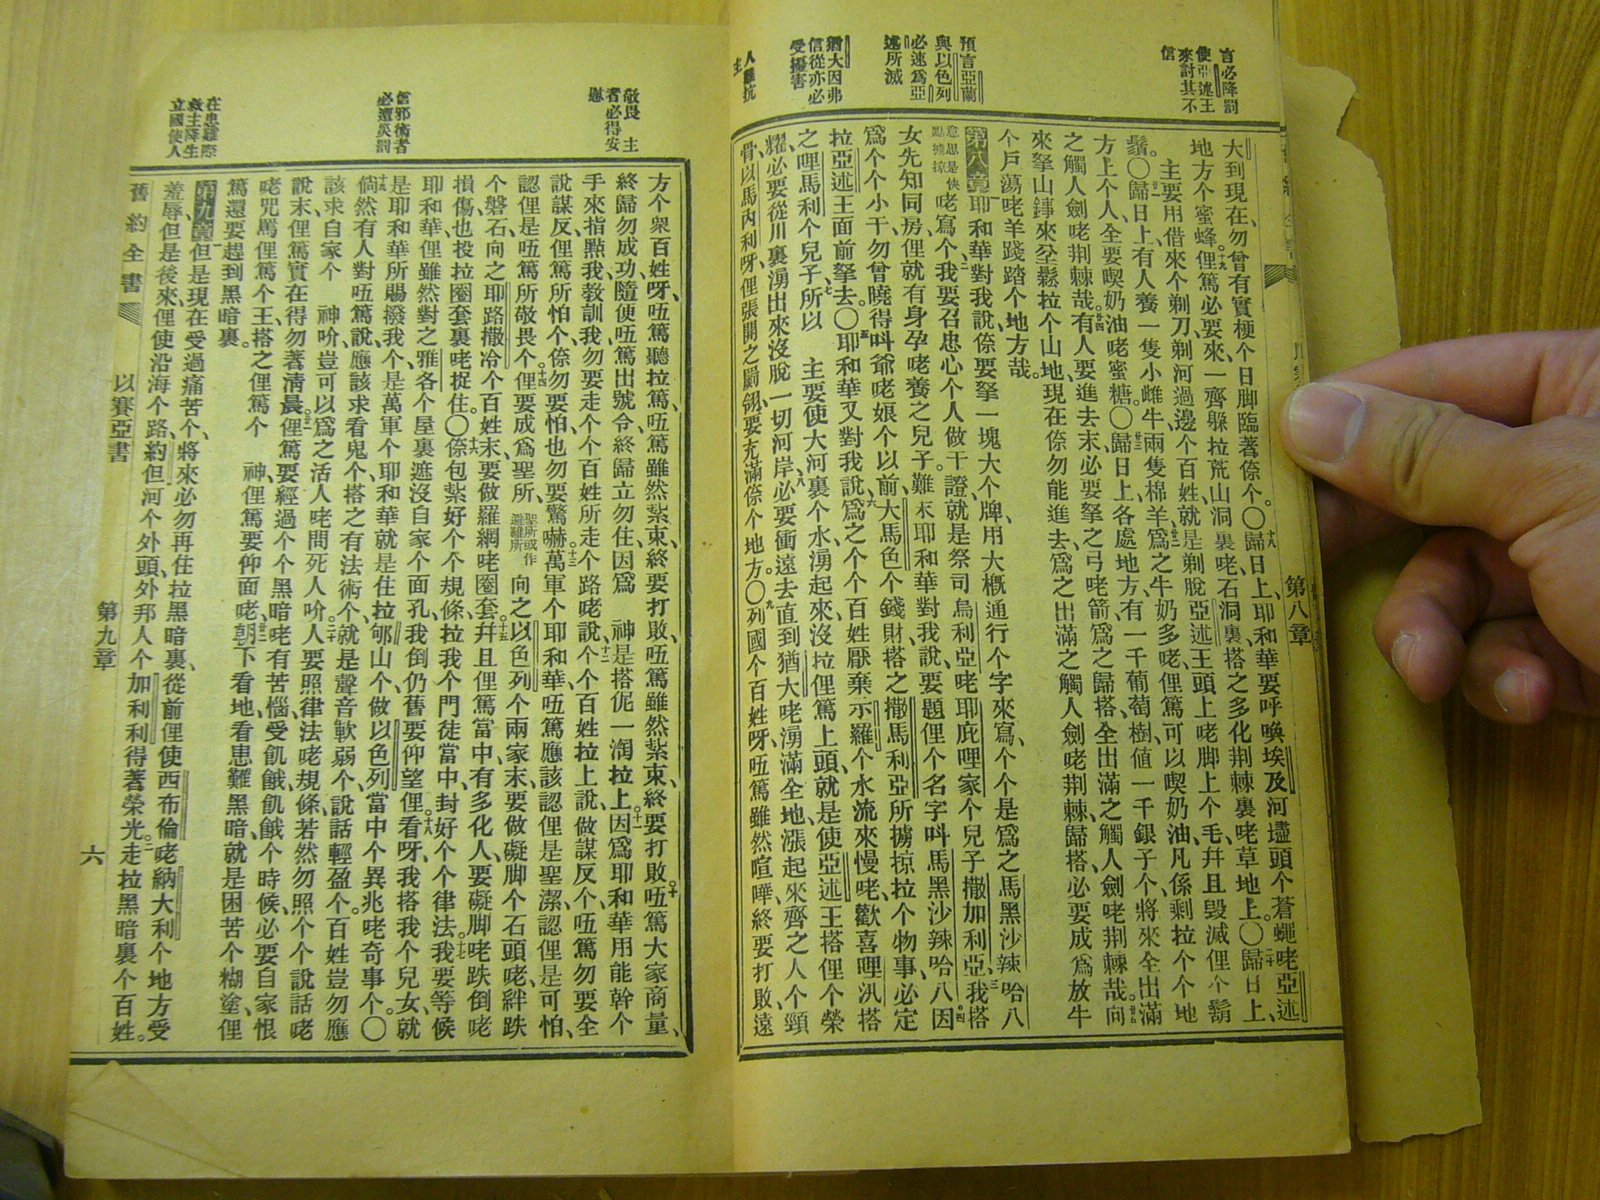 言必降罰
使亞述王
來討其不
信
預言亞蘭
與以色列
必速爲亞
述所滅
猶大因弗
信從亦必
受擾害
大到現在、勿曾有實梗个日脚臨著倷个。〇十八歸日上、耶和華要呼喚埃及河壗頭个蒼蠅咾亞述
地方个蜜蜂。十九俚篤必要來、一齊躲拉荒山洞裏咾石洞裏搭之多化荆棘裏咾草地上。〇二十歸日上、
主要用借來个剃刀剃河過邊个百姓、就是剃脫亞述王頭上咾脚上个毛、幷且毁滅俚个鬍
鬚。〇廿一歸日上有人養一隻小雌牛兩隻棉羊、廿二爲之牛奶多咾、俚篤可以喫奶油、凡係剩拉个个地
方上个人、全要喫奶油咾蜜糖。〇廿三歸日上、各處地方、有一千葡萄樹、値一千銀子个、將來全出滿
之觸人劍咾荆棘哉。廿四有人要進去末、必要拏之弓咾箭、爲之歸搭全出滿之觸人劍咾荆棘哉。廿五向
來拏山鋒來垒鬆拉个山地、現在倷勿能進去、爲之出滿之觸人劍咾荆棘、歸搭必要成爲放牛
个戶蕩咾羊踐踏个地方哉。
第八章一耶和華對我說、倷要拏一塊大个牌、用大概通行个字來寫、个个是爲之馬黑沙辣哈八
意思是快點擄掠咾寫个、二我要召忠心个人做干證、就是祭司烏利亞咾耶庇哩家个兒子撒加利亞、三我搭
女先知同房、俚就有身孕咾養之兒子、難末耶和華對我說、要題俚个名字呌馬黑沙辣哈八、四因
爲个个小干、勿曾曉得呌爺咾娘个以前、大馬色个錢財搭之撒馬利亞所擄掠拉个物事、必定
拉亞述王面前拏去。〇五耶和華又對我說、六爲之个个百姓厭棄示羅个水流來慢咾、歡喜哩汛搭
之哩馬利个兒子、七所以　主要使大河裏个水湧起來、沒拉俚篤上頭、就是使亞述王搭俚个榮
耀、必要從川裏湧出來、沒脫一切河岸、八必要衝遠去、直到猶大咾湧滿全地、漲起來齊之人个頸
骨、以馬內利呀、俚張開之闊翎、要充滿倷个地方。〇九列國个百姓呀、㕶篤雖然喧嘩、終要打敗、遠
方个衆百姓呀、㕶篤聽拉、㕶篤雖然紥束、終要打敗、㕶篤雖然紥束、終要打敗。十㕶篤大家商量、
終歸勿成功、隨便㕶篤出號令、終歸立勿住、因爲　神是搭伲一淘拉上。十一因爲耶和華用能幹个
手來指點我、敎訓我、勿要走个个百姓所走个路咾說、十二个个百姓拉上說、做謀反个、㕶篤勿要全
說謀反、俚篤所怕个、倷勿要怕也勿要驚嚇、十三萬軍个耶和華、㕶篤應該認俚是聖潔、認俚是可怕、
認俚是㕶篤所敬畏个。十四俚要成爲聖所、聖所或作避難所向之以色列个兩家末、要做礙脚个石頭咾絆跌
个磐石、向之耶路撒冷个百姓末、要做羅網咾圈套、十五幷且俚篤當中、有多化人、要礙脚咾跌倒咾
損傷、也投拉圈套裏咾捉住。〇十六倷包紮好个个規條、拉我个門徒當中、封好个个律法。十七我要等候
耶和華、俚雖然對之雅各个屋裏遮沒自家个面孔、我倒仍舊要仰望俚。十八看呀、我搭我个兒女、就
是耶和華所賜撥我个、是萬軍个耶和華、就是住拉郇山个、做以色列當中个異兆咾奇事个。〇
十九倘然有人對㕶篤說、應該求看鬼个、搭之有法術个、就是聲音軟弱个、說話輕盈个。百姓豈勿應
該求自家个　神吤、豈可以爲之活人咾問死人吤、二十人要照律法咾規條、若然勿照个个說話咾
說末、俚篤實在得勿著淸晨。俚篤要經過个个黑暗咾有苦惱、受飢餓、飢餓个時候、必要自家恨
咾咒罵俚篤个王、搭之俚篤个　神、俚篤要仰面咾、朝下看地、看患難黑暗、就是困苦个糊塗、俚
篤還要趕到黑暗裏。
第九章一但是現在受過痛苦个、將來必勿再住拉黑暗裏、從前俚使西布倫咾納大利个地方受
羞辱、但是後來俚使沿海个路、約但河个外頭、外邦人个加利利得著榮光。二走拉黑暗裏个百姓。
敬畏　主
者必得安
慰
信邪術者
必遭災罰
在患難際
救主降生
立國使人
舊約全書
以賽亞書
第九章
六
第八章